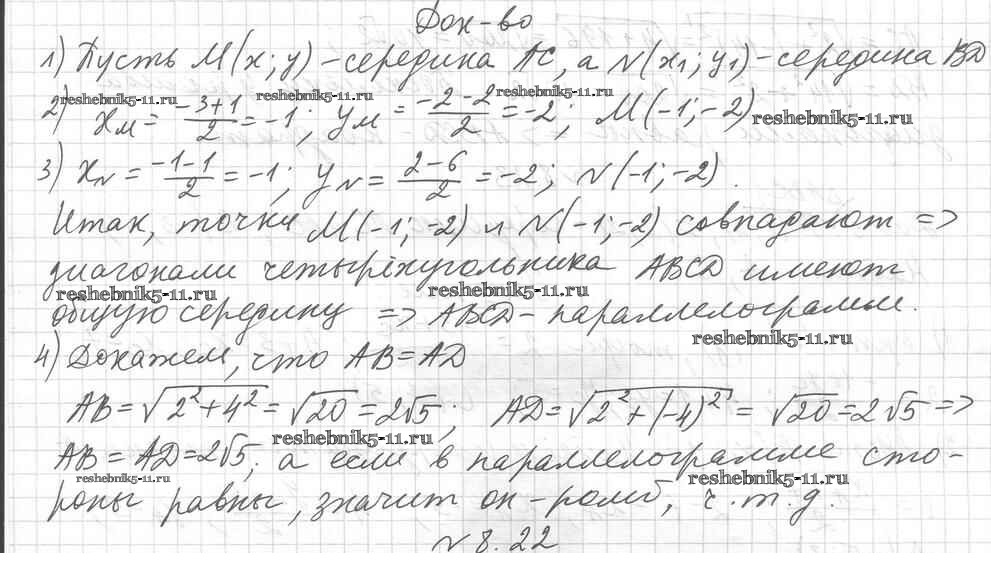 Док-во
1) Пусть M(x; y) - середина AC, а N(x₁; y₁) - середина BD
reshebnik5-11.ru reshebnik5-11.ru reshebnik5-11.ru
2) x_M = (-3+1)/2 = -1; y_M = (-2-2)/2 = -2; M(-1; -2)
reshebnik5-11.ru
3) x_N = (-1-1)/2 = -1; y_N = (2-6)/2 = -2; N(-1; -2).
Итак, точки M(-1; -2) и N(-1; -2) совпадают =>
диагонали четырёхугольника ABCD имеют
reshebnik5-11.ru reshebnik5-11.ru
общую середину => ABCD - параллелограмм.
reshebnik5-11.ru
4) Докажем, что AB = AD
AB = √(2² + 4²) = √20 = 2√5; AD = √(2² + (-4)²) = √20 = 2√5 =>
reshebnik5-11.ru
AB = AD = 2√5, а если в параллелограмме сто-
reshebnik5-11.ru reshebnik5-11.ru
роны равны, значит он - ромб, ч.т.д.
№ 8.22